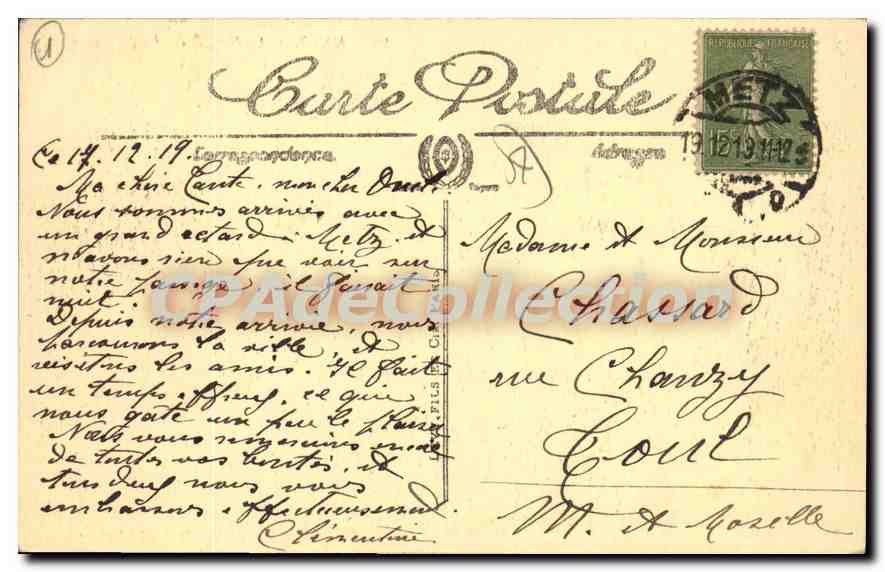 1
Carte Postale
Correspondance
Adresse
RÉPUBLIQUE FRANÇAISE
METZ
19 12 19. 11-12
Ce 17.12.19
Ma chère Tante, mon cher Oncle.
Nous sommes arrivés avec
un grand retard à Metz, et
n'avons rien pu voir sur
notre passage il faisait
nuit.
Depuis notre arrivée, nous
parcourons la ville, et
visitons les amis. Il fait
un temps affreux, ce qui
nous gâte un peu le plaisir
Nous vous remercions encore
de toutes vos bontés, et
tous deux nous vous
embrassons affectueusement
Clémentine
LEVY FILS ET Cie PARIS
Madame et Monsieur
Chassard
rue Chanzy
Toul
M. et Moselle
CPAdeCollection